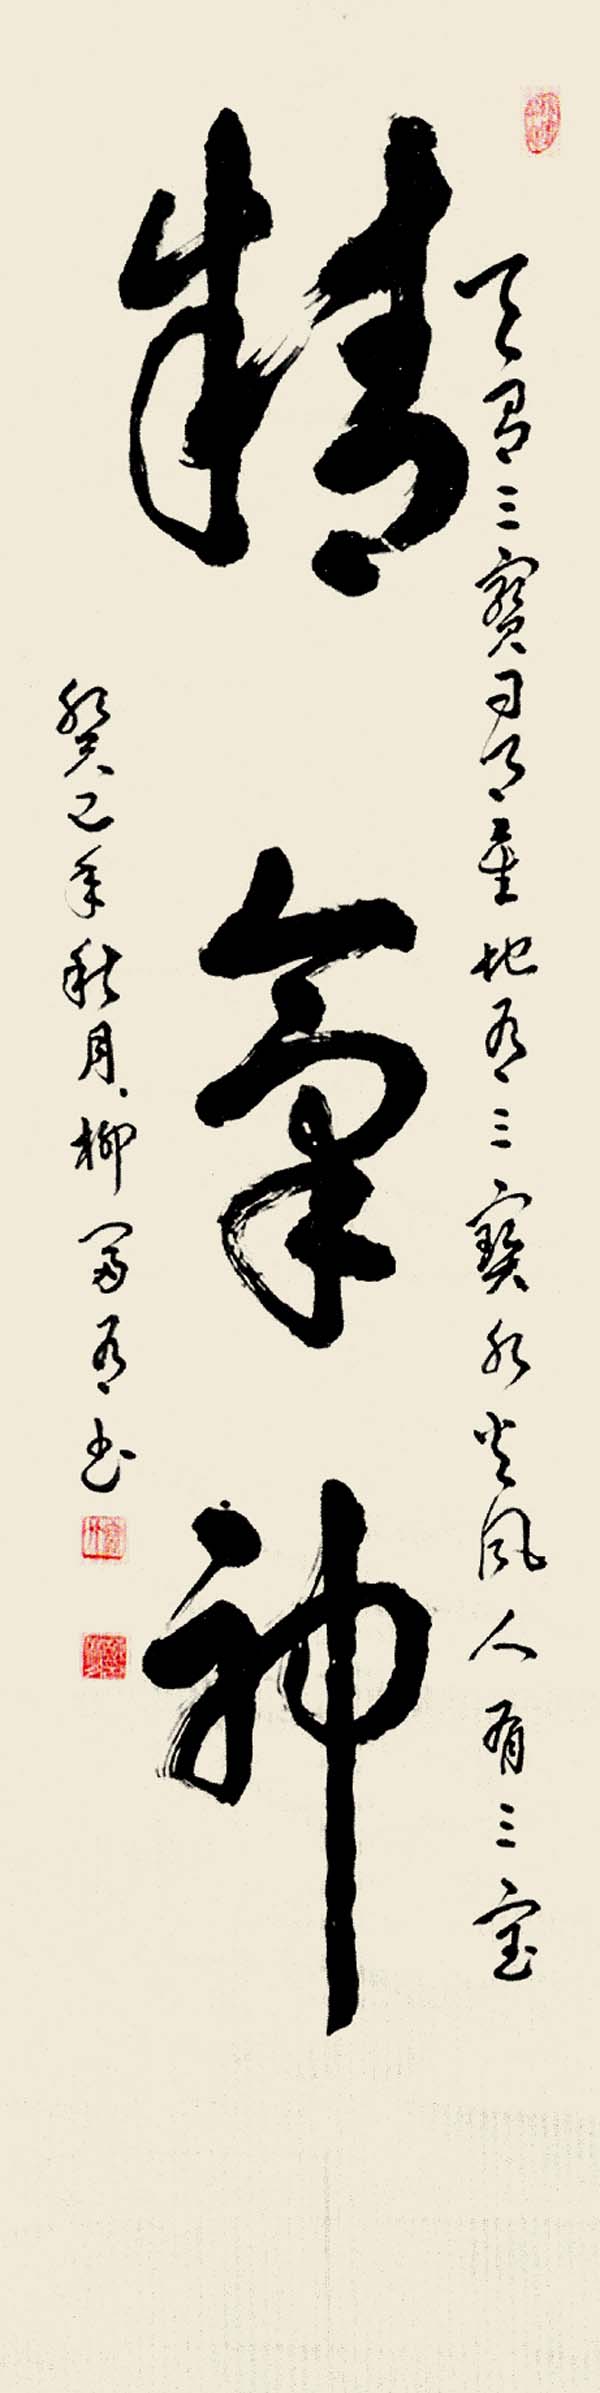 天有三寶日月星地有三寶水火風人有三宝
精氣神
癸巳年秋月柳富有书